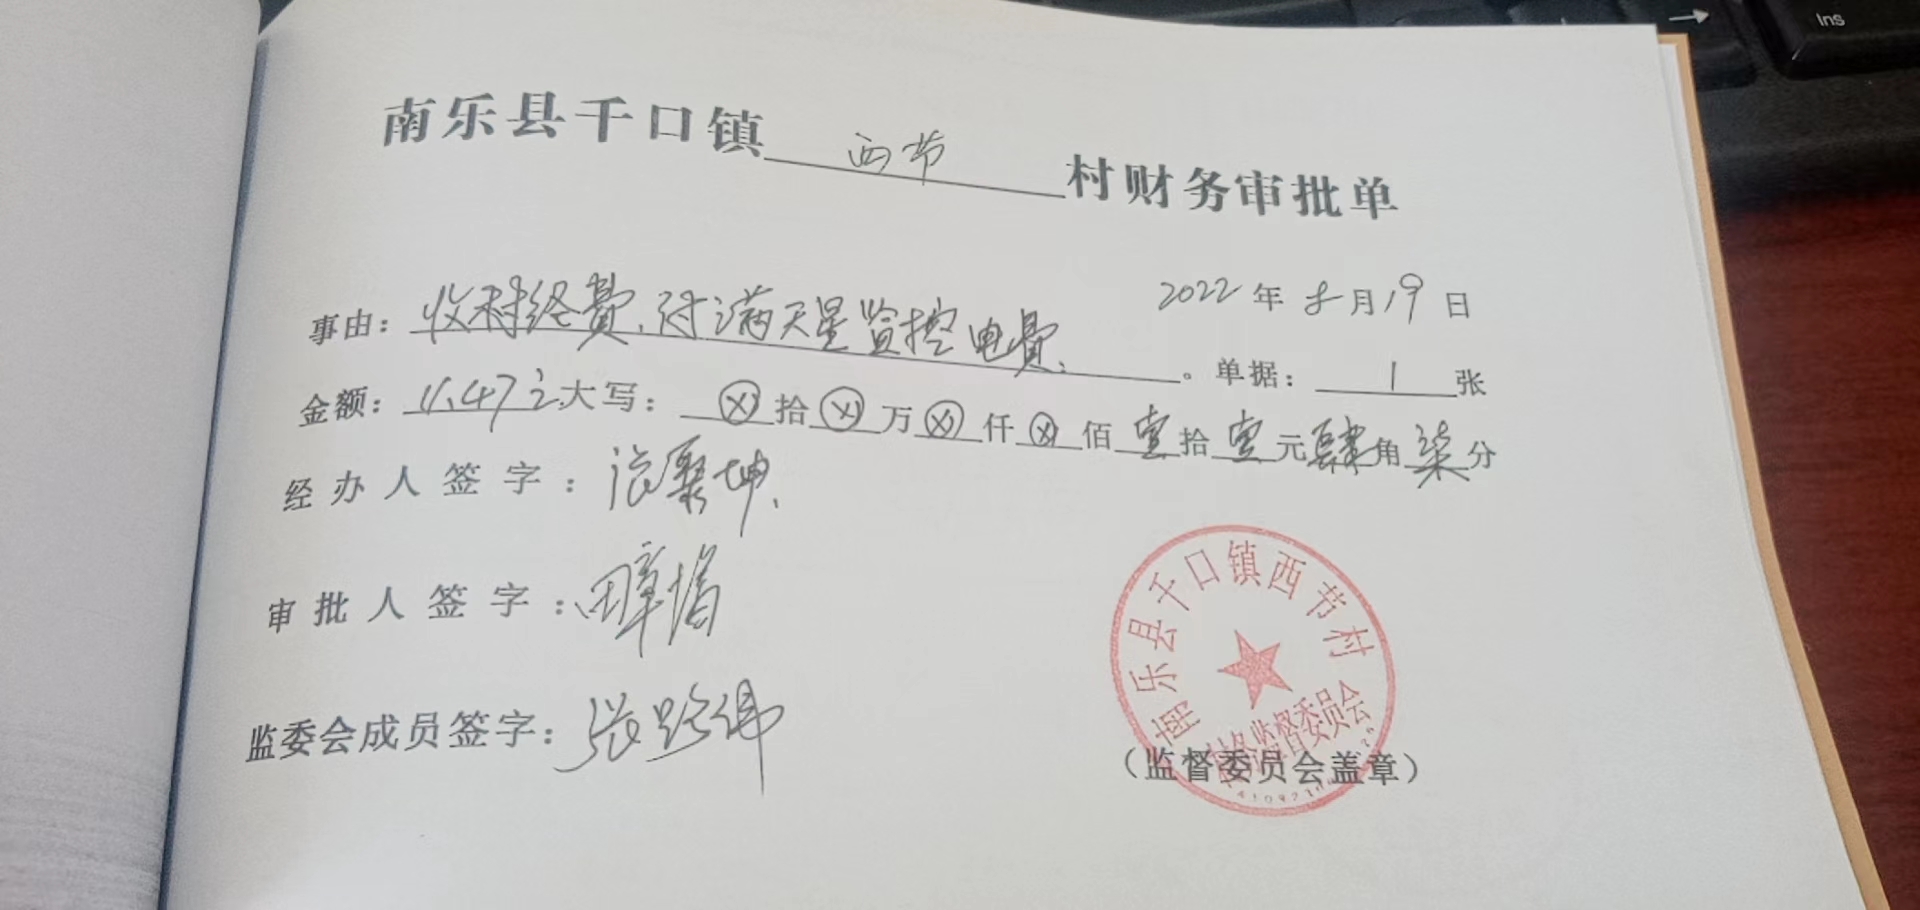 南乐县千口镇 西节 村财务审批单
2022年8月19日
事由：收村经费，付满天星监控电费。单据：1张
金额：11.47元大写：ⓧ拾ⓧ万ⓧ仟ⓧ佰壹拾壹元肆角柒分
经办人签字：张聚坤
审批人签字：田章
监委会成员签字：张路伟
南乐县千口镇西节村
村务监督委员会
（监督委员会盖章）
Ins